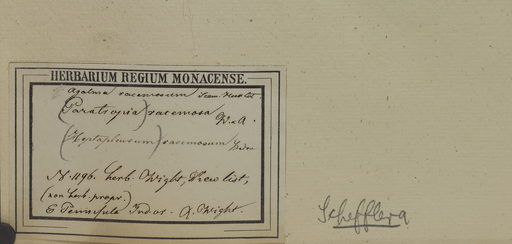 HERBARIUM REGIUM MONACENSE.
Agalma racemosum Seem.
(Paratropia) racemosa W.&A.
(Heptapleurum) racemosum Bedd.
N. 1196. herb. Wight, Kew list,
(non herb. propr.)
E Peninsula Indor. - A. Wight.
Schefflera